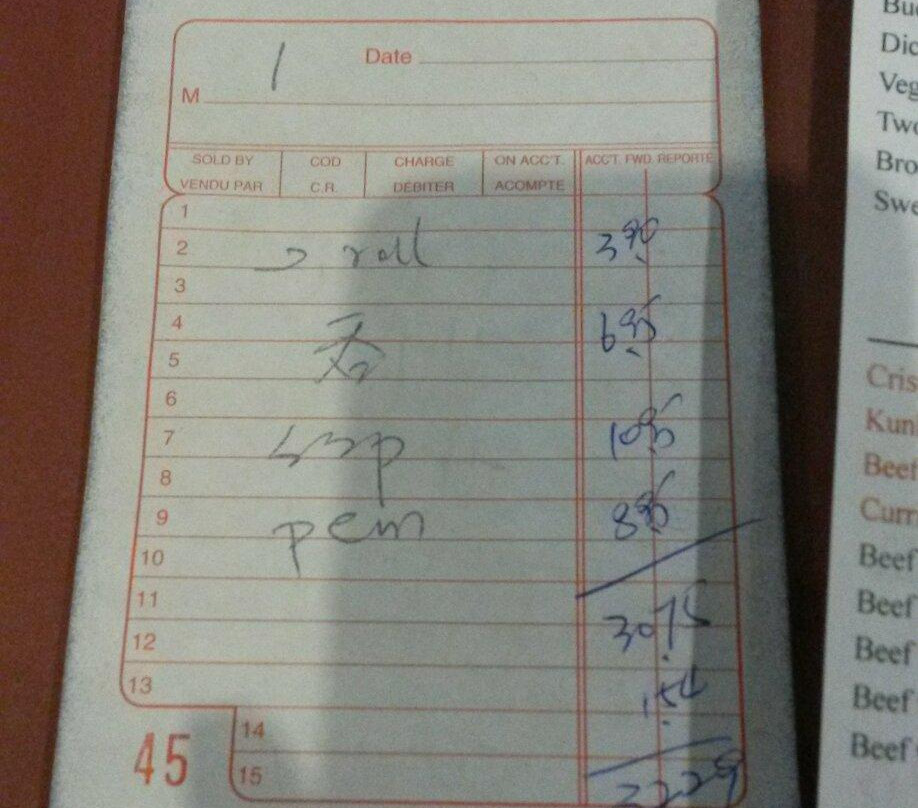 1 Date
M
SOLD BY COD CHARGE ON ACC'T. ACC'T. FWD. REPORTÉ
VENDU PAR C.R. DÉBITER ACOMPTE
1
2 2 roll 3.90
3
4 6.95
5
6
7 10.95
8
9 pem 8.95
10
11
12 30.75
13 1.54
14
15 32.29
45
Dic
Veg
Two
Bro
Swe
Cris
Kun
Beef
Curr
Beef
Beef
Beef
Beef
Beef